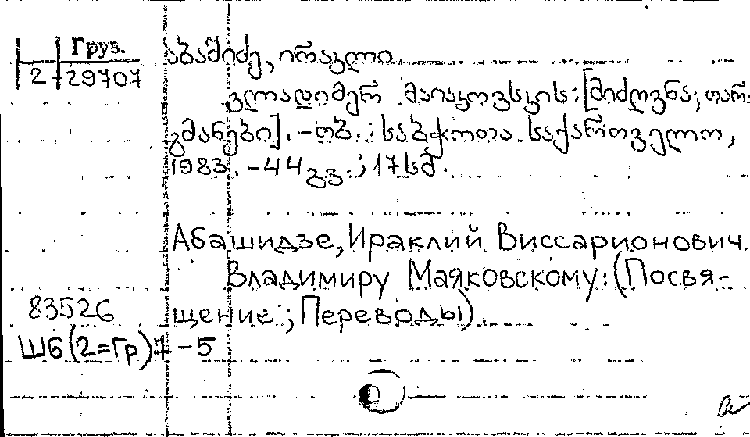 Груз.
2-29707
აბაშიძე, ირაკლი
ვლადიმერ მაიაკოვსკის: [მიძღვნა; თარ-
გმანები]. - თბ. : საბჭოთა საქართველო,
1983. - 44 გვ. ; 17 სმ.
Абашидзе, Ираклий Виссарионович.
Владимиру Маяковскому: (Посвя-
щение; Переводы).
83526
Ш6(2=Гр)7 -5